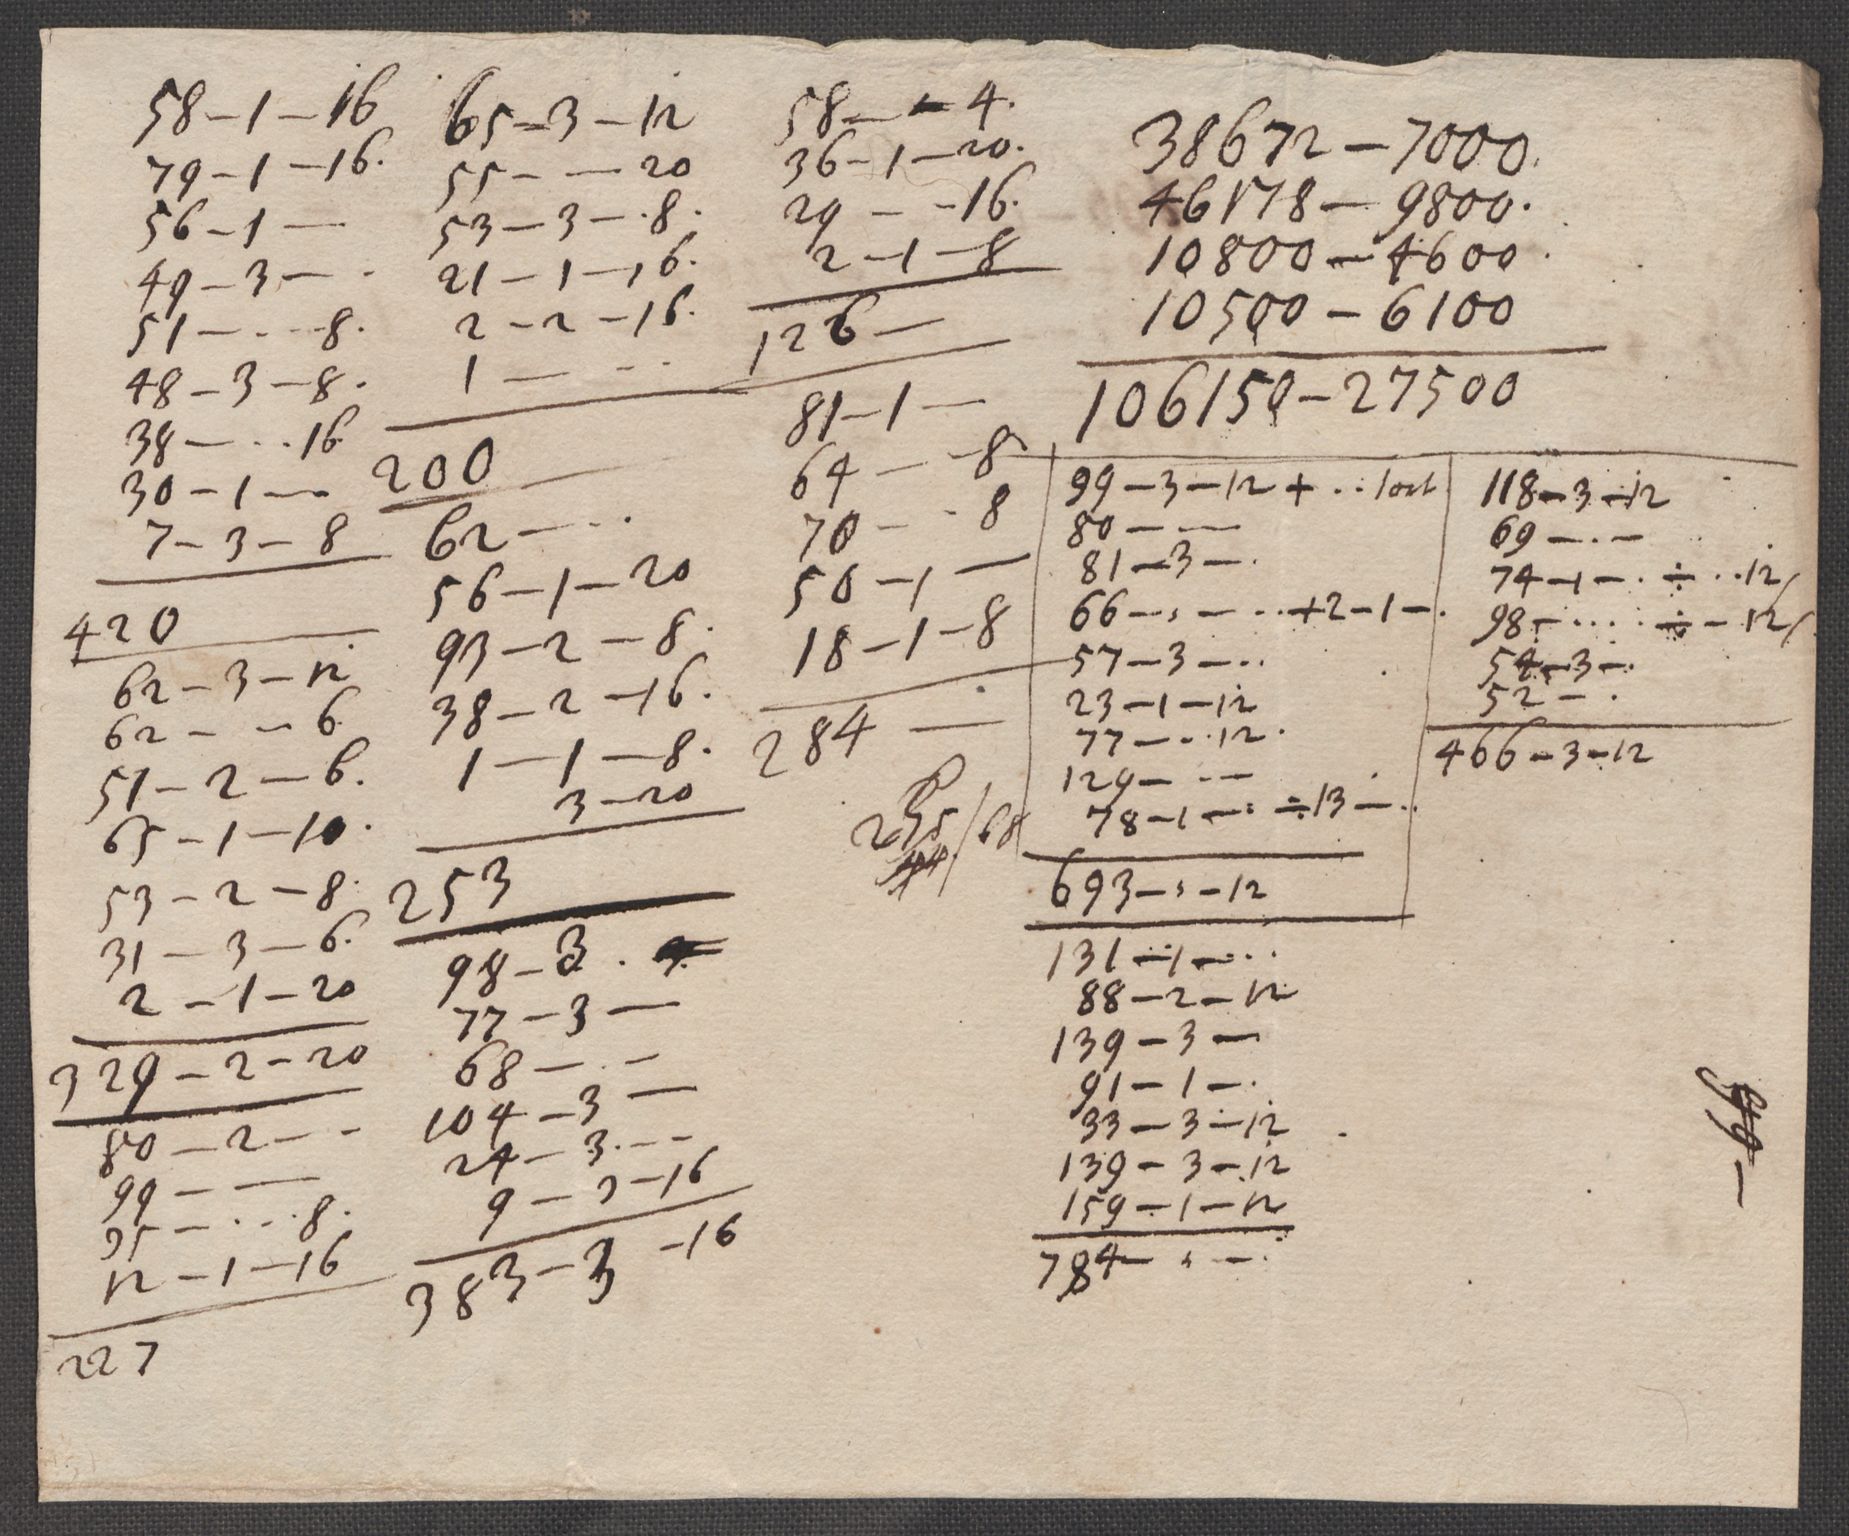 58-1-16
79-1-16.
56-1-
49-3-·
51-··-8.
48-3-8.
38-··16
30-1-
7-3-8
420
62-3-12
62--6
51-2-6.
65-1-10.
53-2-8.
31-3-6.
2-1-20
329-2-20
80-2--
99--
35-··-8.
12-1-16
227
65-3-12
55--20
53-3-·8.
21-1-16.
2-2-16.
1-··
200
62-··
56-1-20
93-2-8.
38-2-16.
1-1-8.
3-20
253
98-3.
77-3-
68-·-
104-3-
24-3·--
9-3-16
383-3-16
58--4.
36-1-20.
29--16.
2-1-8
126-
81-1-
64--8
70--8
50-1-
18-1-8
284-
235/68
38672-7000.
46178-9800.
10800-4600.
10500-6100
106150-27500
99-3-12+··1 ort
80--
81-3-·
66-·-··+2-1-·
57-3-··
23-1-12
77-··12.
129-·-
78-1-·÷13-··
693-·-12
131-1-··
88-2-12
139-3-
91-1-·
33-3-12
139-3-12
159-1-12
784-·-·
118-3-12
69-·-
74-1-·÷··12/
98-····÷-12/
54-3-·
52-·
466-3-12